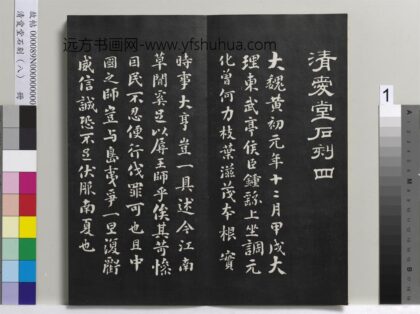 清愛堂石刻四
大魏黃初元年十二月甲戌大
理東武亭侯臣鍾繇上坐調元
化曾何力枝葉滋茂本根實
時事大亨豈一具述今江南
草閒奚足以屏王師乎俟其苛慘
因民不忍使行伐罪可也且中
國之師豈与島夷爭一里復
威信誠恐不足伏服南夏也
远方书画网-www.yfshuhua.com
故帖 000089N000000000
清愛堂石刻(八) 冊
1